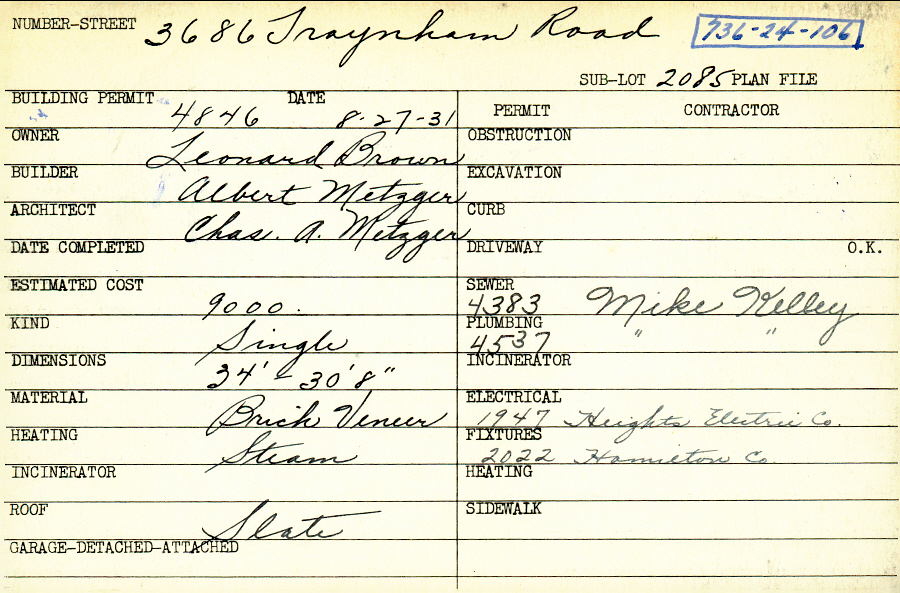 NUMBER-STREET 3686 Traynham Road 736-24-106
SUB-LOT 2085 PLAN FILE
BUILDING PERMIT 4846 DATE 8-27-31
OWNER Leonard Brown
BUILDER Albert Metzger
ARCHITECT Chas. A. Metzger
DATE COMPLETED
ESTIMATED COST 9000.
KIND Single
DIMENSIONS 34' - 30'8"
MATERIAL Brick Veneer
HEATING Steam
INCINERATOR
ROOF Slate
GARAGE-DETACHED-ATTACHED
PERMIT CONTRACTOR
OBSTRUCTION
EXCAVATION
CURB
DRIVEWAY O.K.
SEWER 4383 Mike Kelley
PLUMBING 4537 " "
INCINERATOR
ELECTRICAL 1947 Heights Electric Co.
FIXTURES 2022 Hamilton Co
HEATING
SIDEWALK